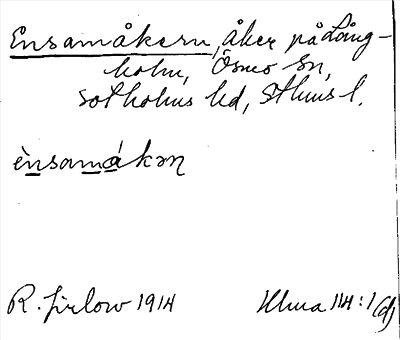 Ensamåkern, åker på Lång-
holm, Ösmo sn,
Sotholms hd, Sthms l.
ènsamåkəɳ
R. Jirlow 1914
Ulma 114:1(d)